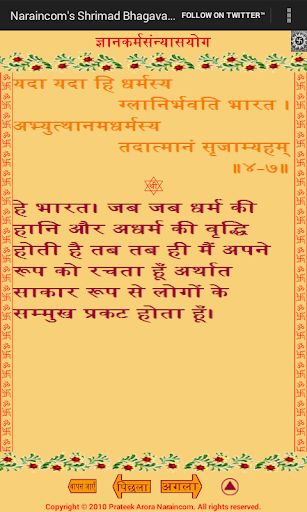 Naraincom's Shrimad Bhagava... FOLLOW ON TWITTER™
ज्ञानकर्मसंन्यासयोग
यदा यदा हि धर्मस्य
ग्लानिर्भवति भारत ।
अभ्युत्थानमधर्मस्य
तदात्मानं सृजाम्यहम्
॥४-७॥
हे भारत। जब जब धर्म की
हानि और अधर्म की वृद्धि
होती है तब तब ही मैं अपने
रूप को रचता हूँ अर्थात
साकार रूप से लोगों के
सम्मुख प्रकट होता हूँ।
वापस जाएें पिछला अगला
Copyright © 2010 Prateek Arora Naraincom. All rights reserved.